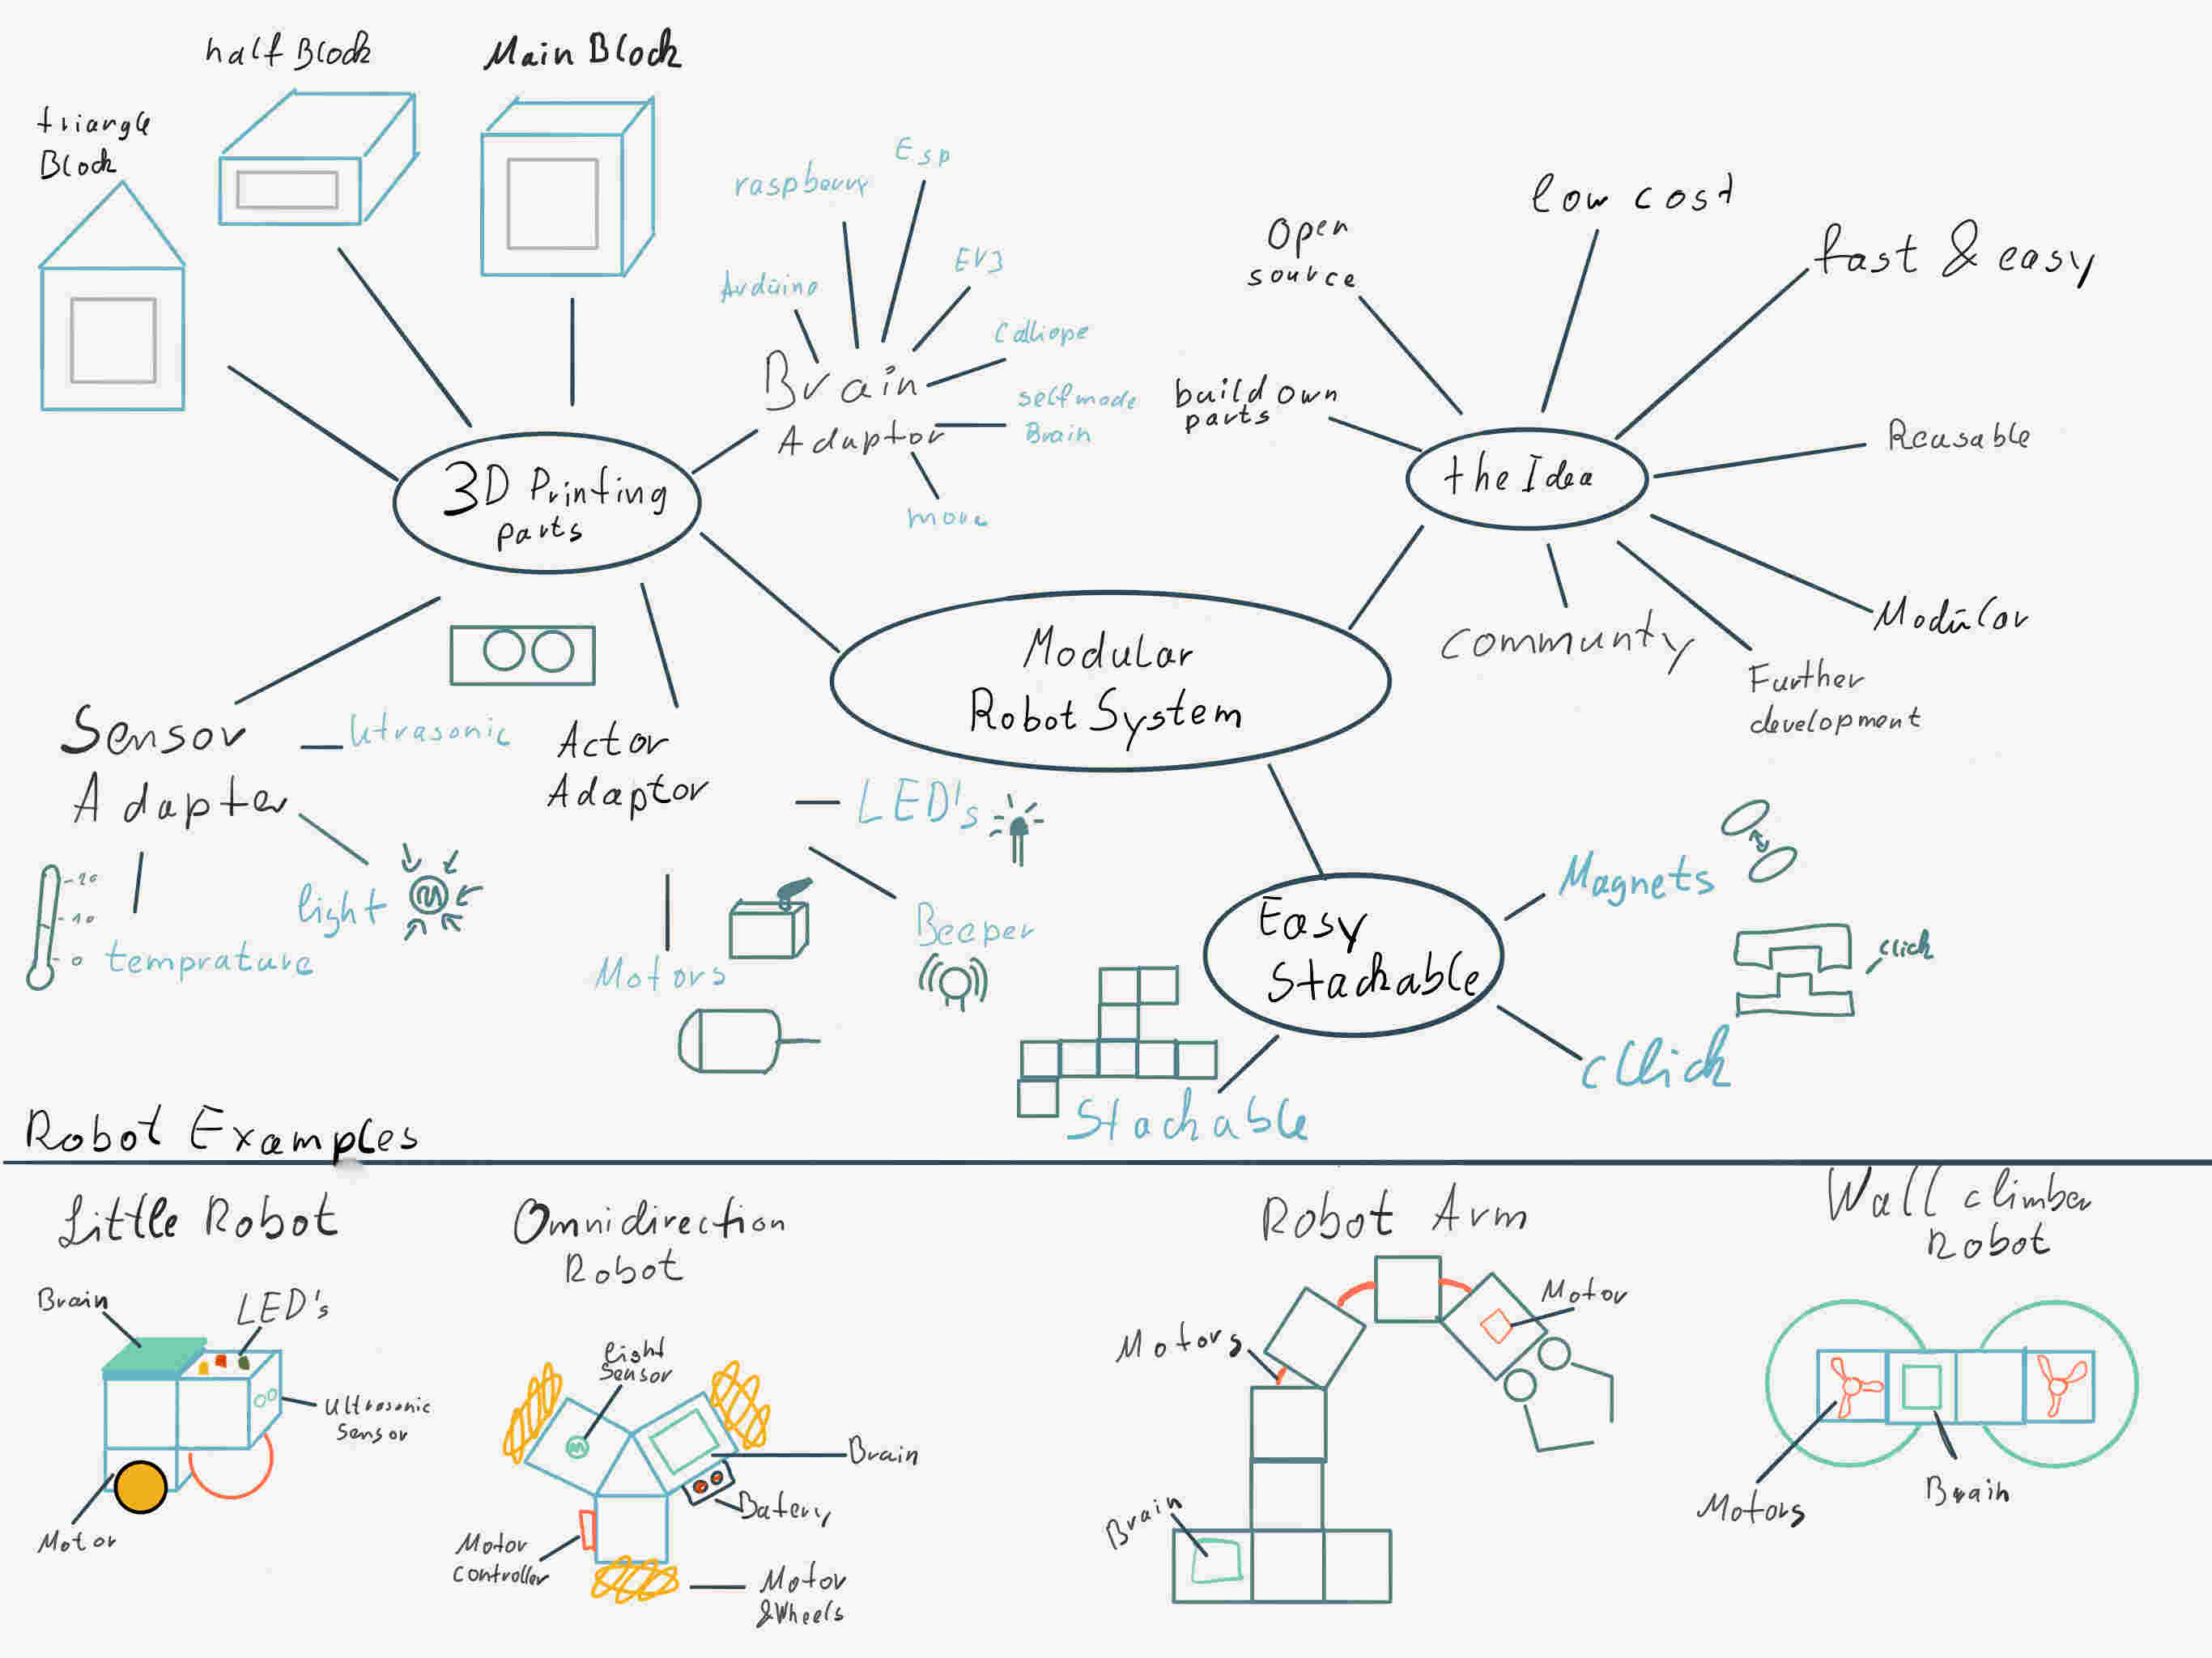 half Block
Main Block
triangle
Block
raspberry
Esp
Arduino
EV3
Calliope
Brain
Adaptor
selfmade
Brain
more
3D Printing
parts
Open
source
low cost
fast & easy
build own
parts
the Idea
Reusable
Modular
Communty
Further
development
Modular
Robot System
Sensor
Adapter
Utrasonic
light
20
10
0
temprature
Actor
Adaptor
LED's
Beeper
Motors
Easy
Stackable
Magnets
click
cllick
Stackable
Robot Examples
Little Robot
Brain
LED's
Ultrasonic
Sensor
Motor
Omnidirection
Robot
light
Sensor
Brain
Batery
Motor
Controller
Motor
&Wheels
Robot Arm
Motors
Motor
Brain
Wall climber
Robot
Motors
Brain